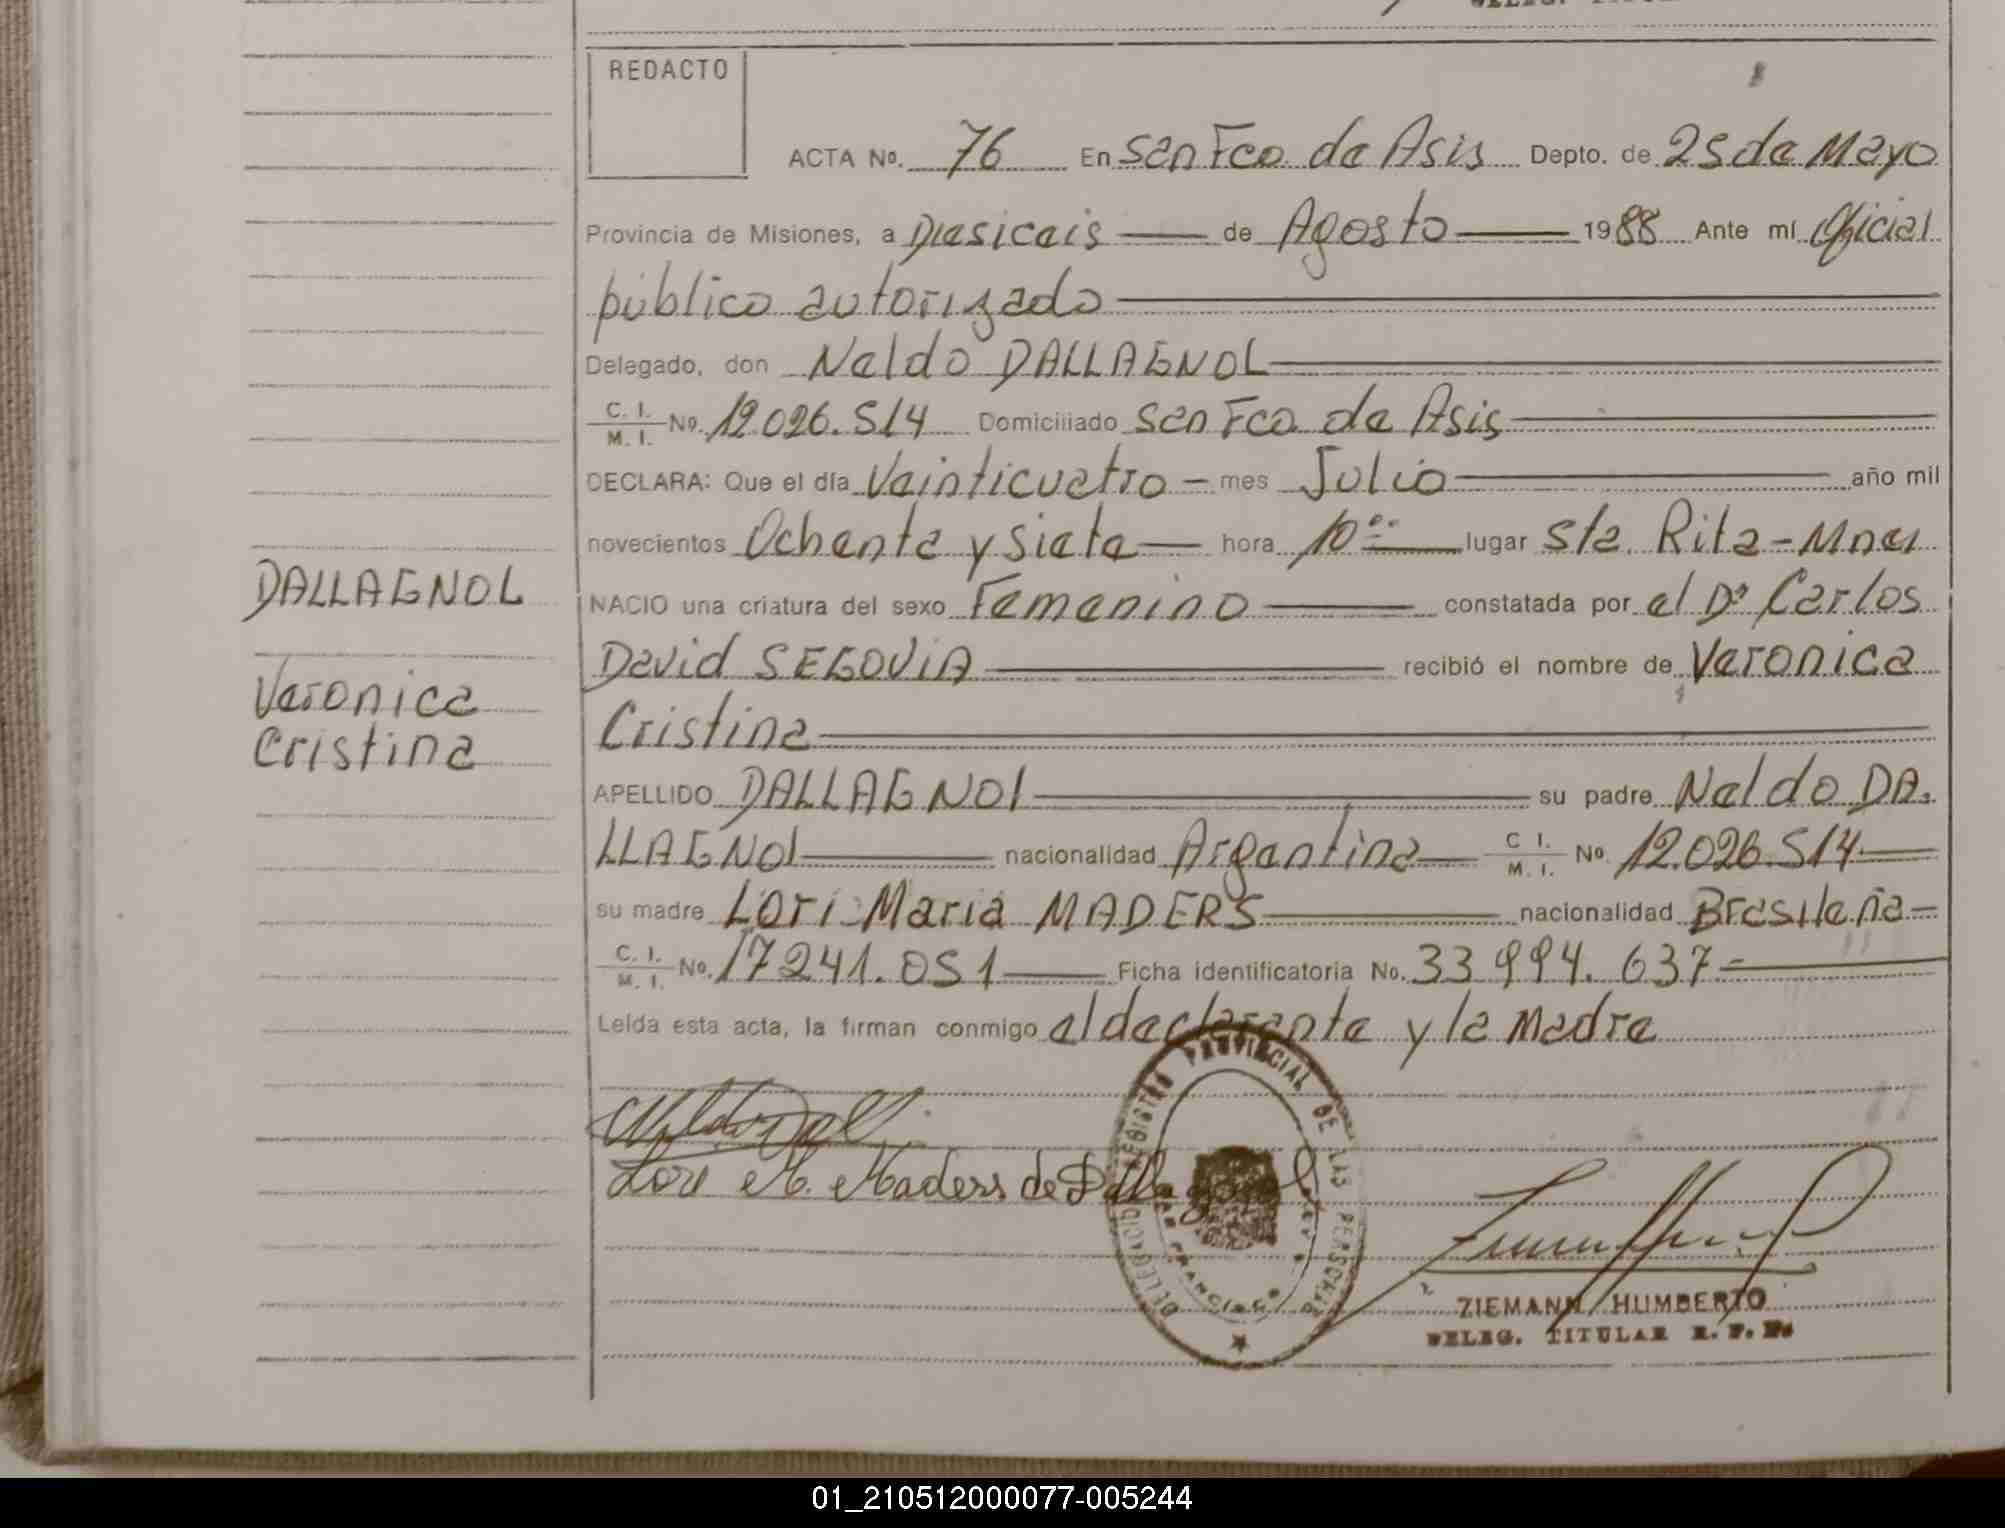 REDACTO
ACTA No. 76 En San Fco de Asis Depto. de 25 de Mayo
Provincia de Misiones, a Diesiceis de Agosto 1988 Ante mí Oficial
público autorizado
Delegado, don Naldo DALLAGNOL
C. I. / M. I. No. 12.026.514 Domiciliado San Fco de Asis
DECLARA: Que el día Veinticuatro - mes Julio año mil
novecientos Ochenta y Siete hora 10:00 lugar Sta. Rita - Mnes
DALLAGNOL
NACIO una criatura del sexo Femenino constatada por el Dr Carlos
David SEGOVIA recibió el nombre de Veronica
Veronica
Cristina
Cristina
APELLIDO DALLAGNOl su padre Naldo DA.
LLAGNOl nacionalidad Argentina C. I. / M. I. No. 12.026.514
su madre Lori Maria MADERS nacionalidad Brasileña
C. I. / M. I. No. 17241.051 Ficha identificatoria No. 33 994. 637
Leída esta acta, la firman conmigo el declarante y la Madre
Lori M. Maders de Dallagnol
DELEGACION REGISTRO PROVINCIAL DE LAS PERSONAS
SAN FRANCISCO
ZIEMANN HUMBERTO
DELEG. TITULAR R. P. P.
01_210512000077-005244